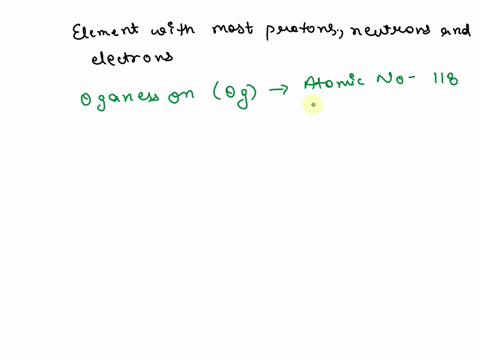 Element with most protons, neutrons and
electrons
Oganess on (Og) → Atomic No- 118